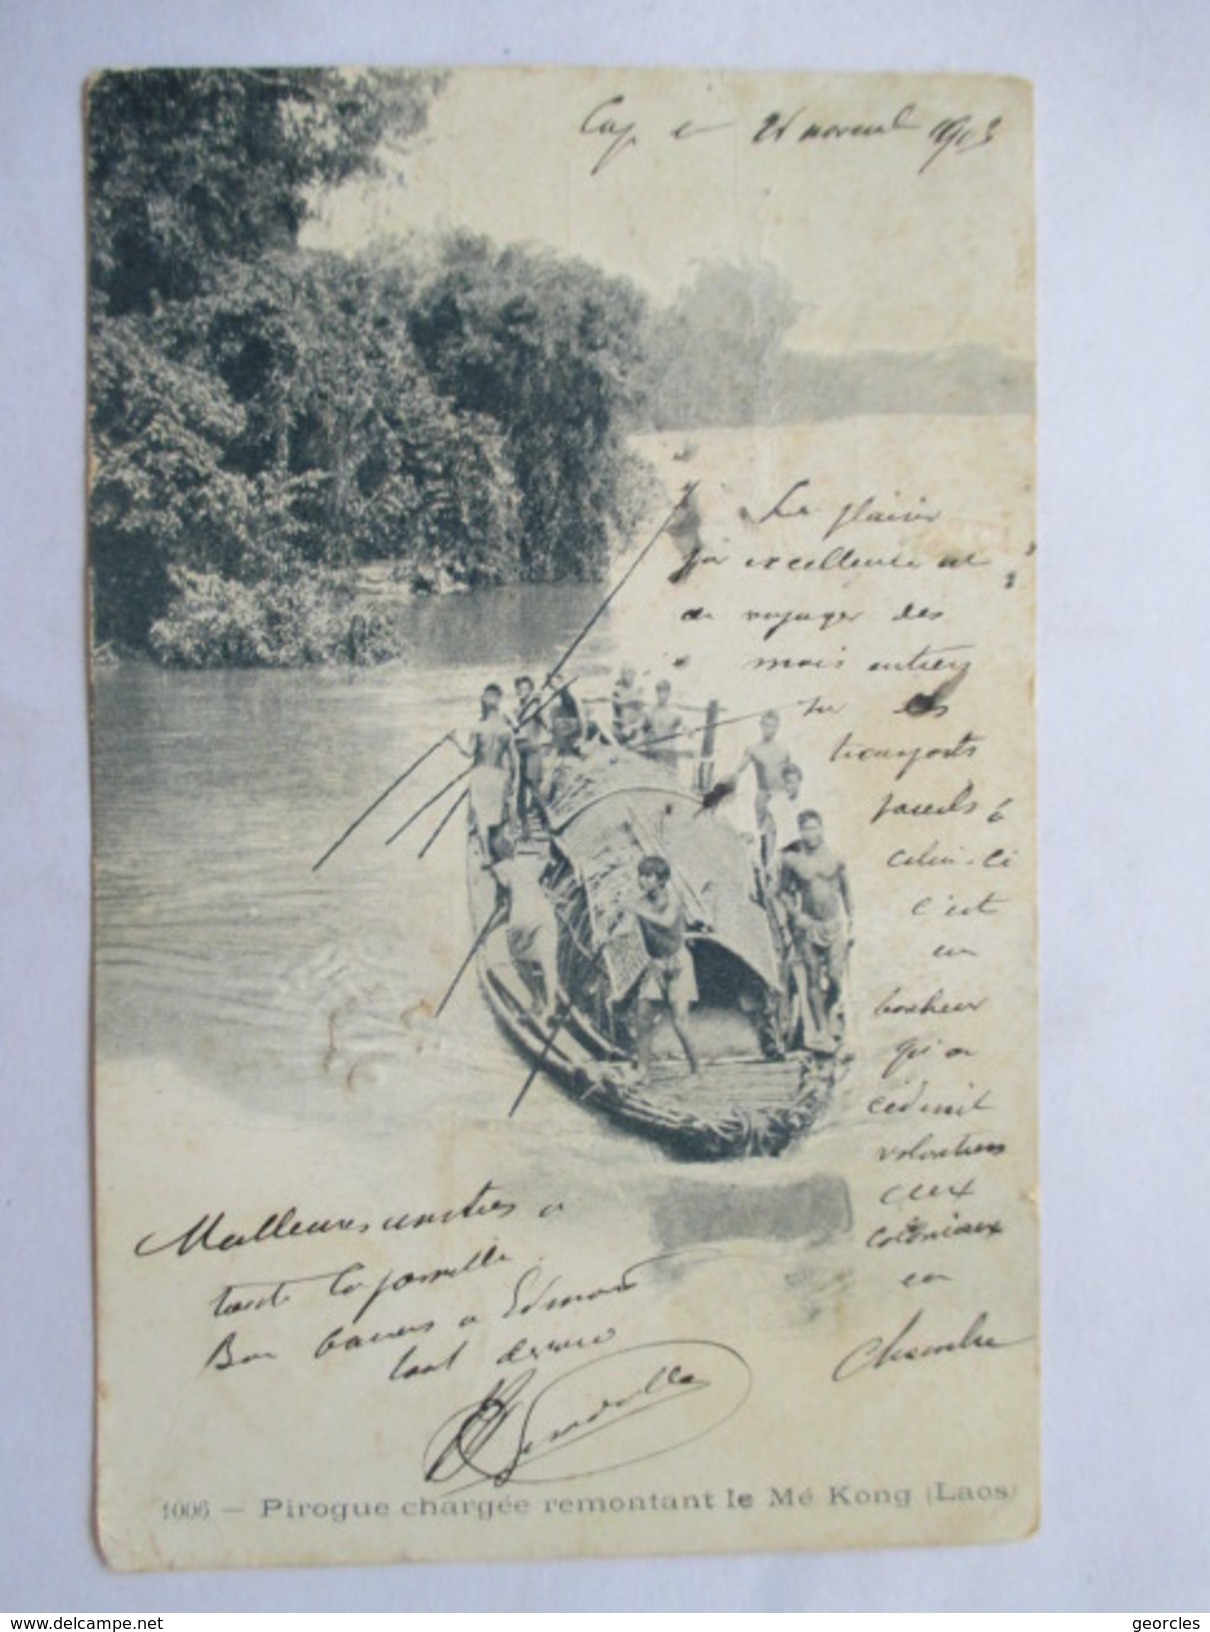 Cap le 26 novembre 1903
Le plaisir
par excellence est
de voyager des
mois entiers
sur les
transports
pareils à
celui-ci
c'est
un
bonheur
qu'on
céderait
volontiers
aux
coloniaux
en
Chambre
Meilleures amitiés à
toute la famille.
Bon baisers à Edmond
tout dévoué
1006 — Pirogue chargée remontant le Mé Kong (Laos)
www.delcampe.net
georcles